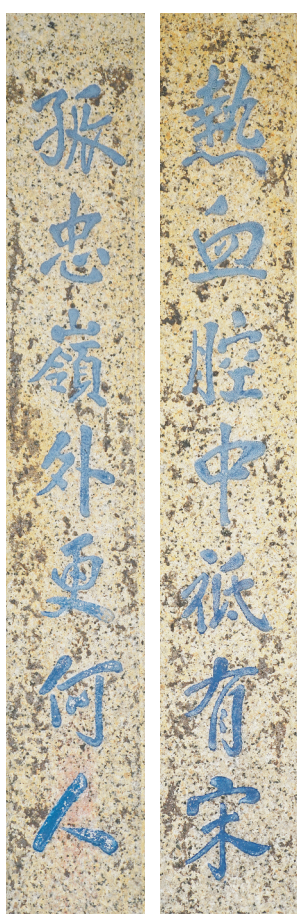 熱血腔中祗有宋
孤忠嶺外更何人